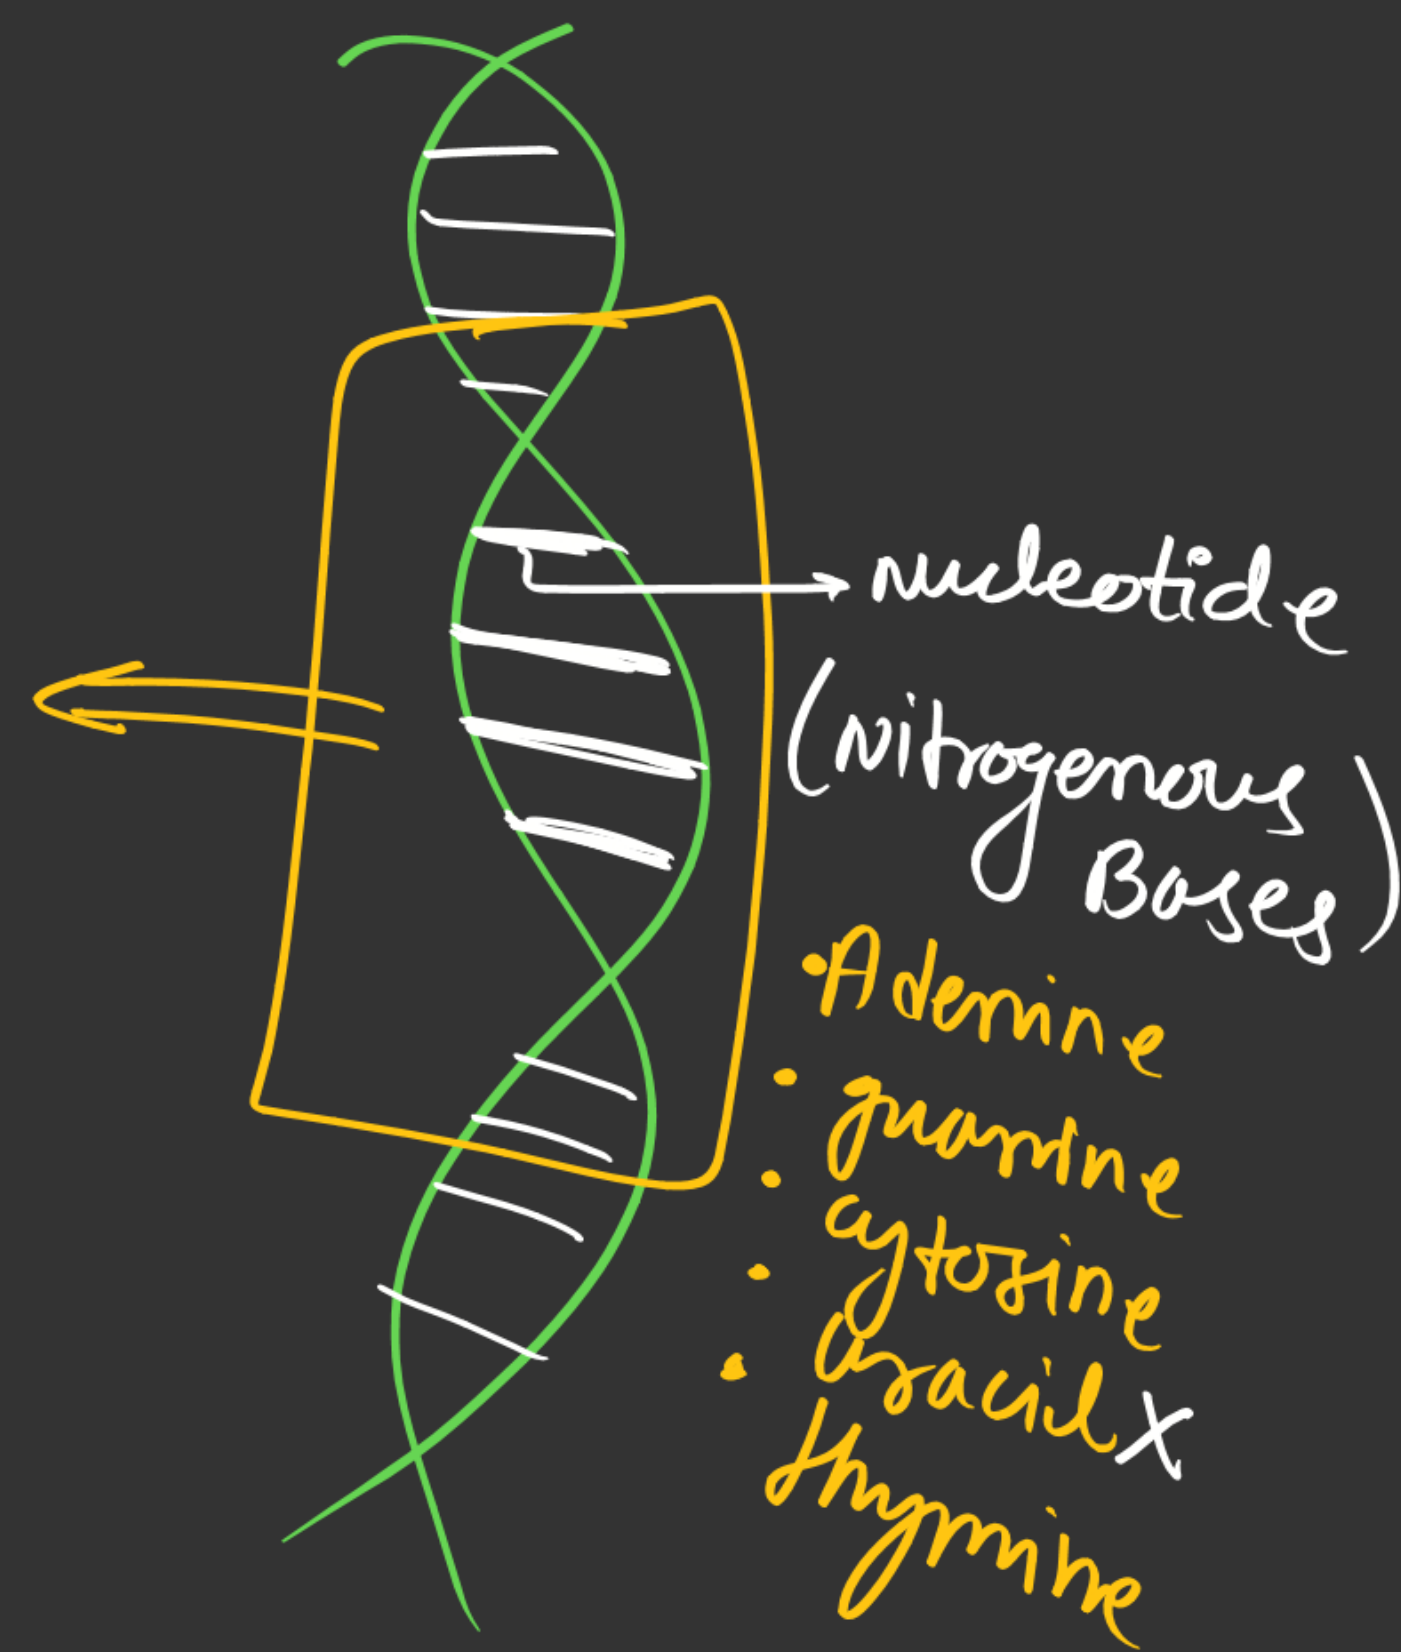 nucleotide
(Nitrogenous
Bases)
• Adenine
• guanine
• cytosine
• Uracil X
• thymine